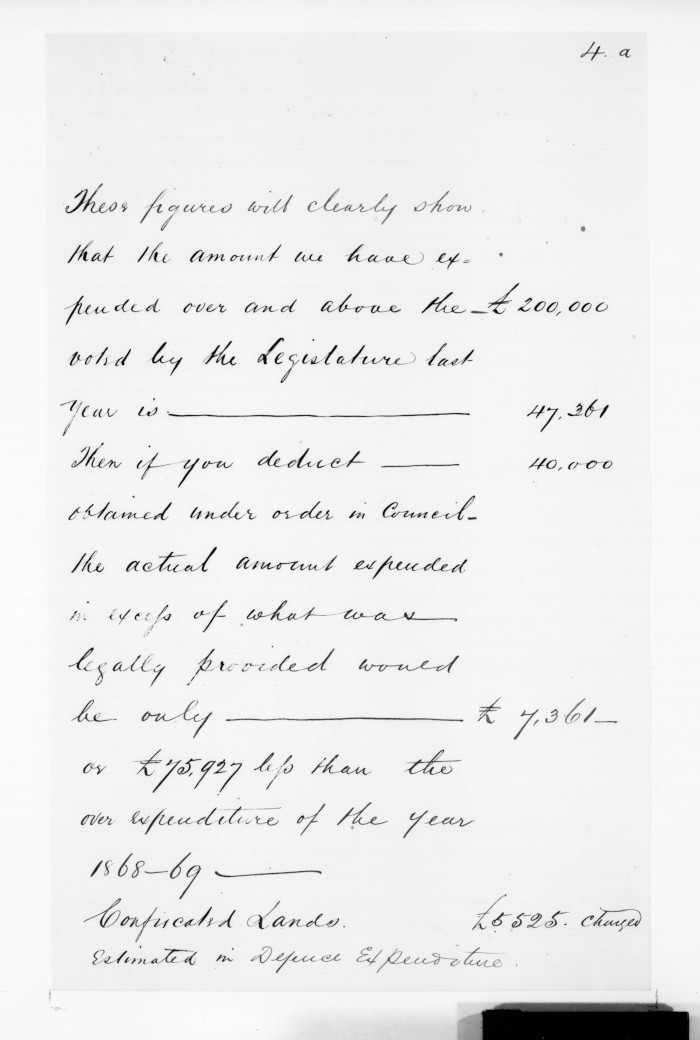 4. a
These figures will clearly show
that the amount we have ex=
pended over and above the £200,000
voted by the Legislature last
Year is — 47,361
Then if you deduct — 40,000
obtained under order in Council-
the actual amount expended
in excess of what was
legally provided would
be only — £7,361—
or £75,927 less than the
over expenditure of the Year
1868-69 —
Confiscated Lands. £5525. charged
Estimated in Defence Expenditure.